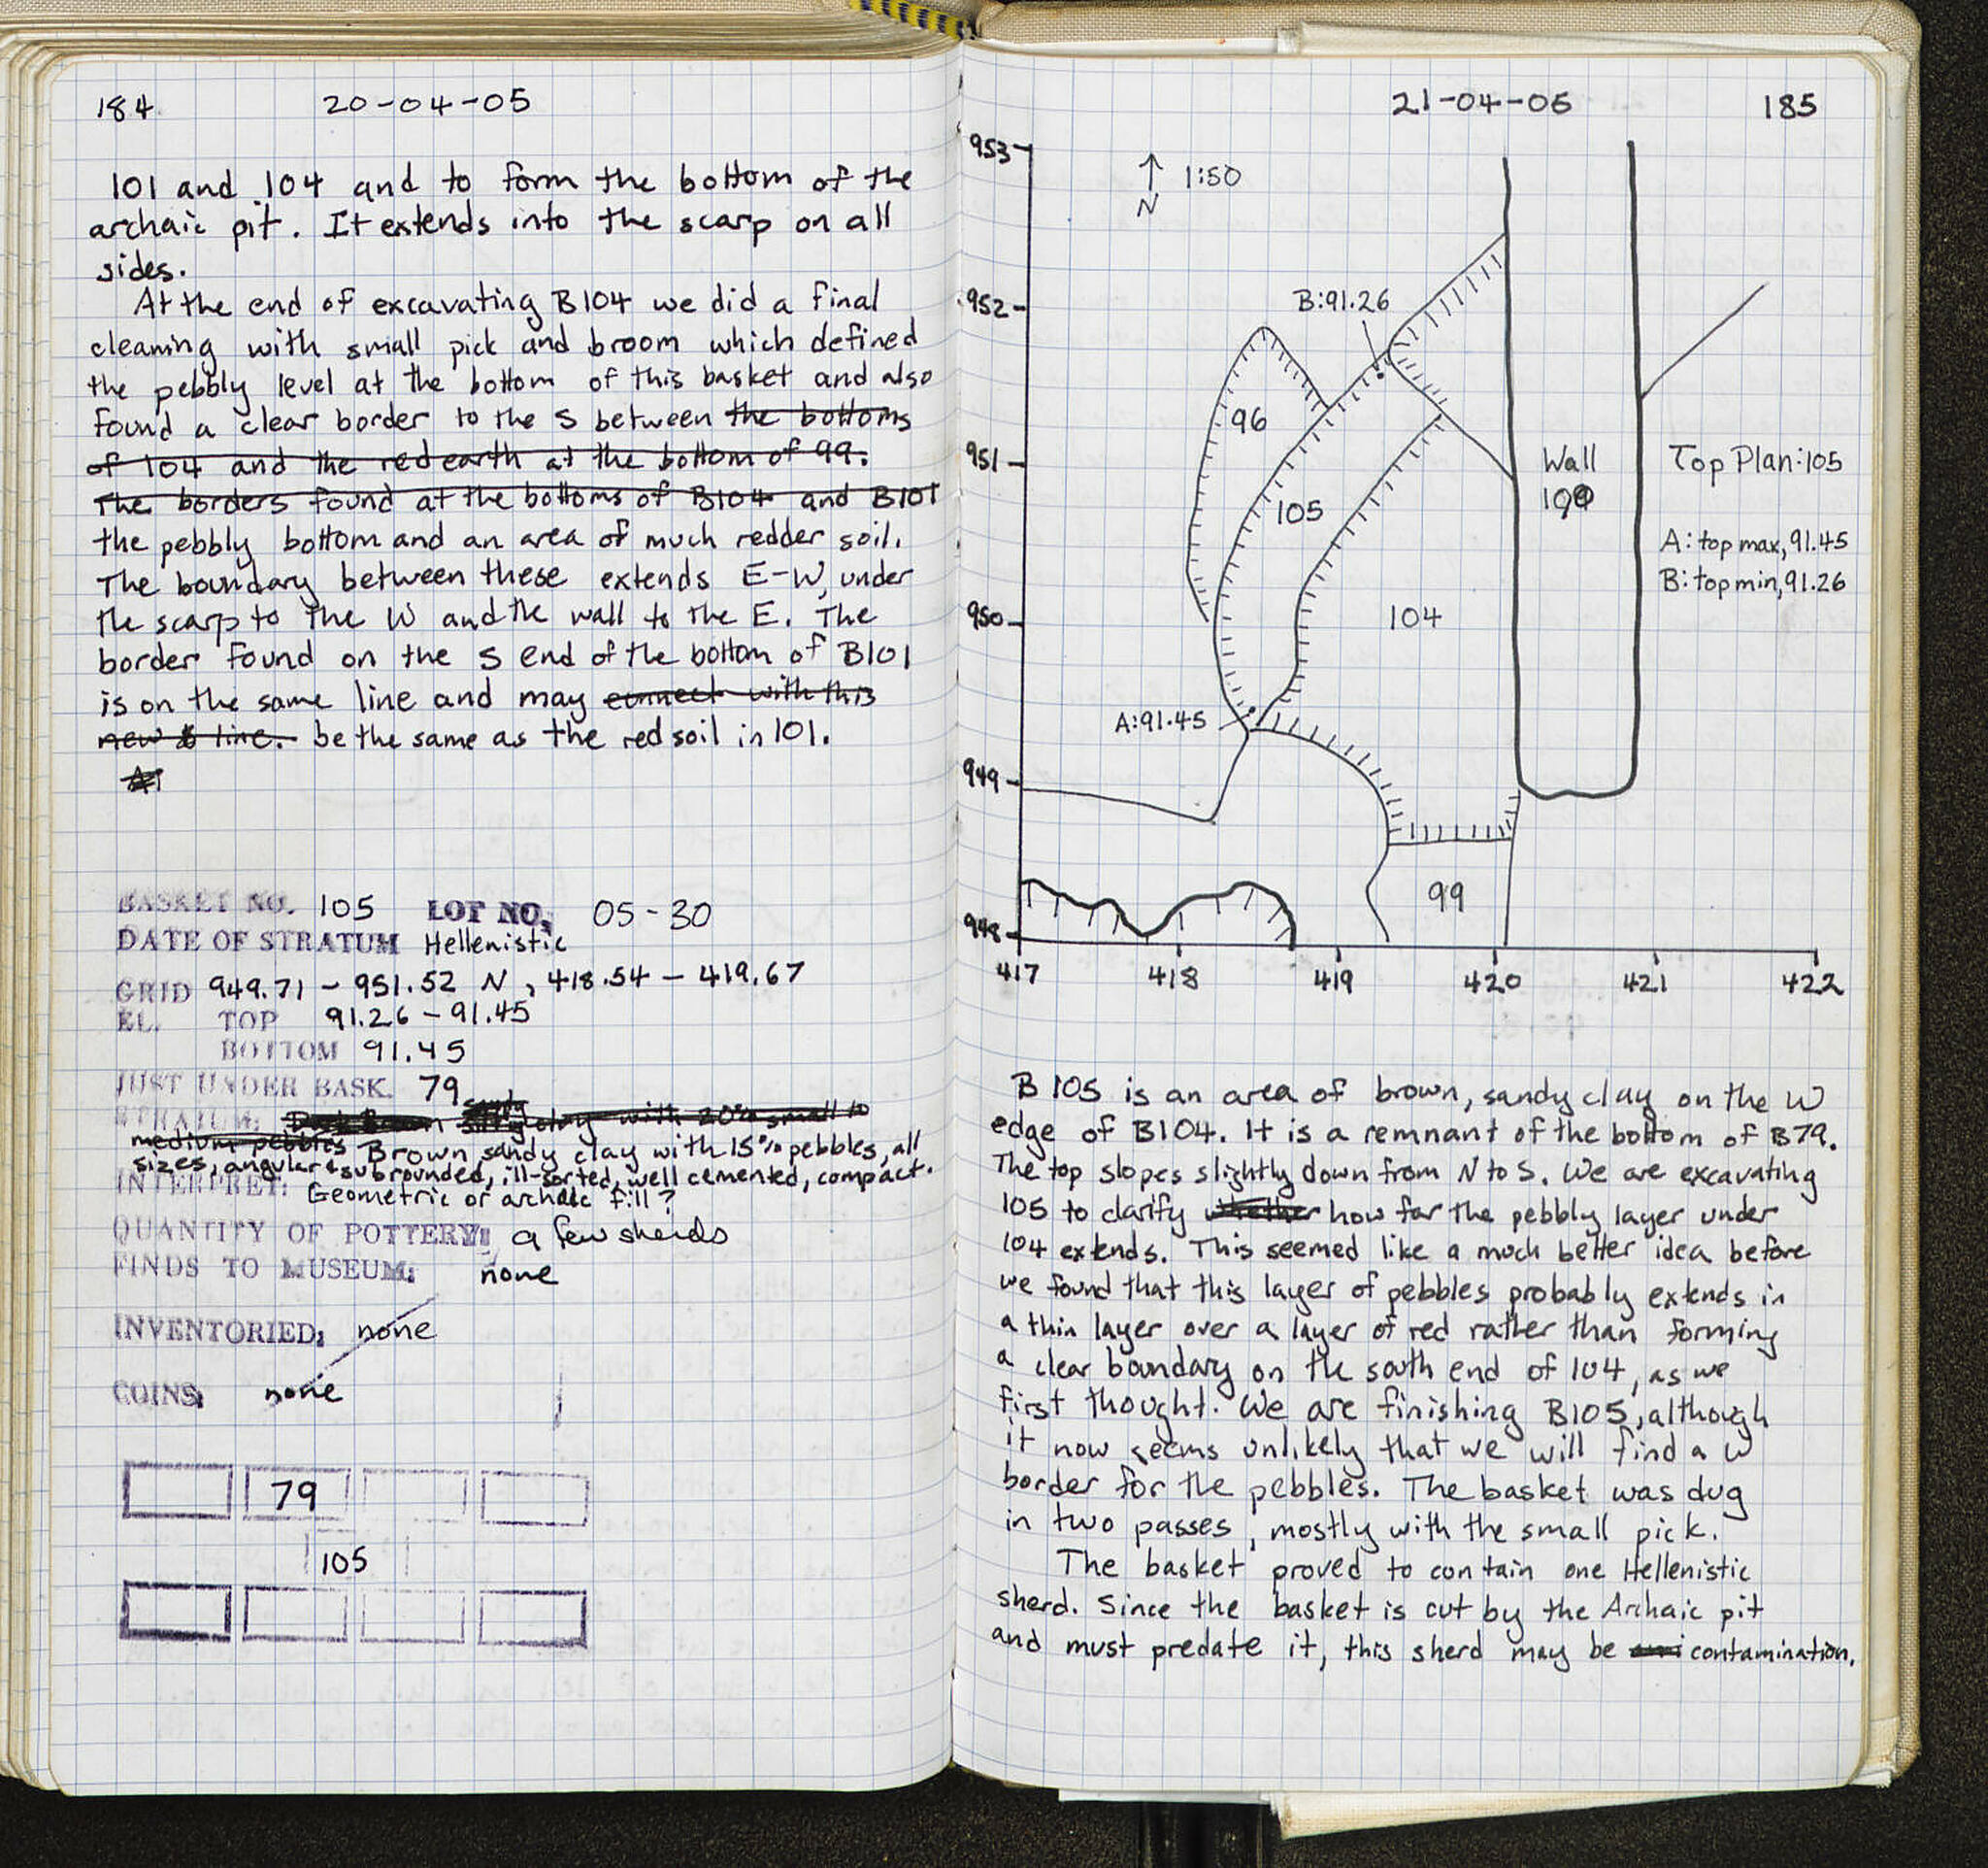 184 20-04-05
101 and 104 and to form the bottom of the
archaic pit. It extends into the scarp on all
sides.
At the end of excavating B104 we did a final
cleaning with small pick and broom which defined
the pebbly level at the bottom of this basket and also
found a clear border to the S between the bottoms
of 104 and the red earth at the bottom of 99.
The borders found at the bottoms of B104 and B101
the pebbly bottom and an area of much redder soil.
The boundary between these extends E-W, under
the scarp to the W and the wall to the E. The
border found on the S end of the bottom of B101
is on the same line and may connect with this
new line. be the same as the red soil in 101.
BASKET NO. 105 LOT NO. 05-30
DATE OF STRATUM Hellenistic
GRID 949.71 - 951.52 N, 418.54 - 419.67
EL. TOP 91.26 - 91.45
BOTTOM 91.45
JUST UNDER BASK. 79
STRATUM: clay with 20% small to
medium pebbles Brown sandy clay with 15% pebbles, all
sizes, angular & subrounded, ill-sorted, well cemented, compact.
INTERPRET: Geometric or archaic fill?
QUANTITY OF POTTERY: a few sherds
FINDS TO MUSEUM: none
INVENTORIED: none
COINS: none
79
105
21-04-05 185
953
952
951
950
949
948
417 418 419 420 421 422
↑ 1:50
N
B:91.26
96
105
104
Wall
109
Top Plan:105
A: top max, 91.45
B: top min, 91.26
A:91.45
99
B105 is an area of brown, sandy clay on the W
edge of B104. It is a remnant of the bottom of B79.
The top slopes slightly down from N to S. We are excavating
105 to clarify whether how far the pebbly layer under
104 extends. This seemed like a much better idea before
we found that this layer of pebbles probably extends in
a thin layer over a layer of red rather than forming
a clear boundary on the south end of 104, as we
first thought. We are finishing B105, although
it now seems unlikely that we will find a W
border for the pebbles. The basket was dug
in two passes, mostly with the small pick.
The basket proved to contain one Hellenistic
sherd. Since the basket is cut by the Archaic pit
and must predate it, this sherd may be contamination.